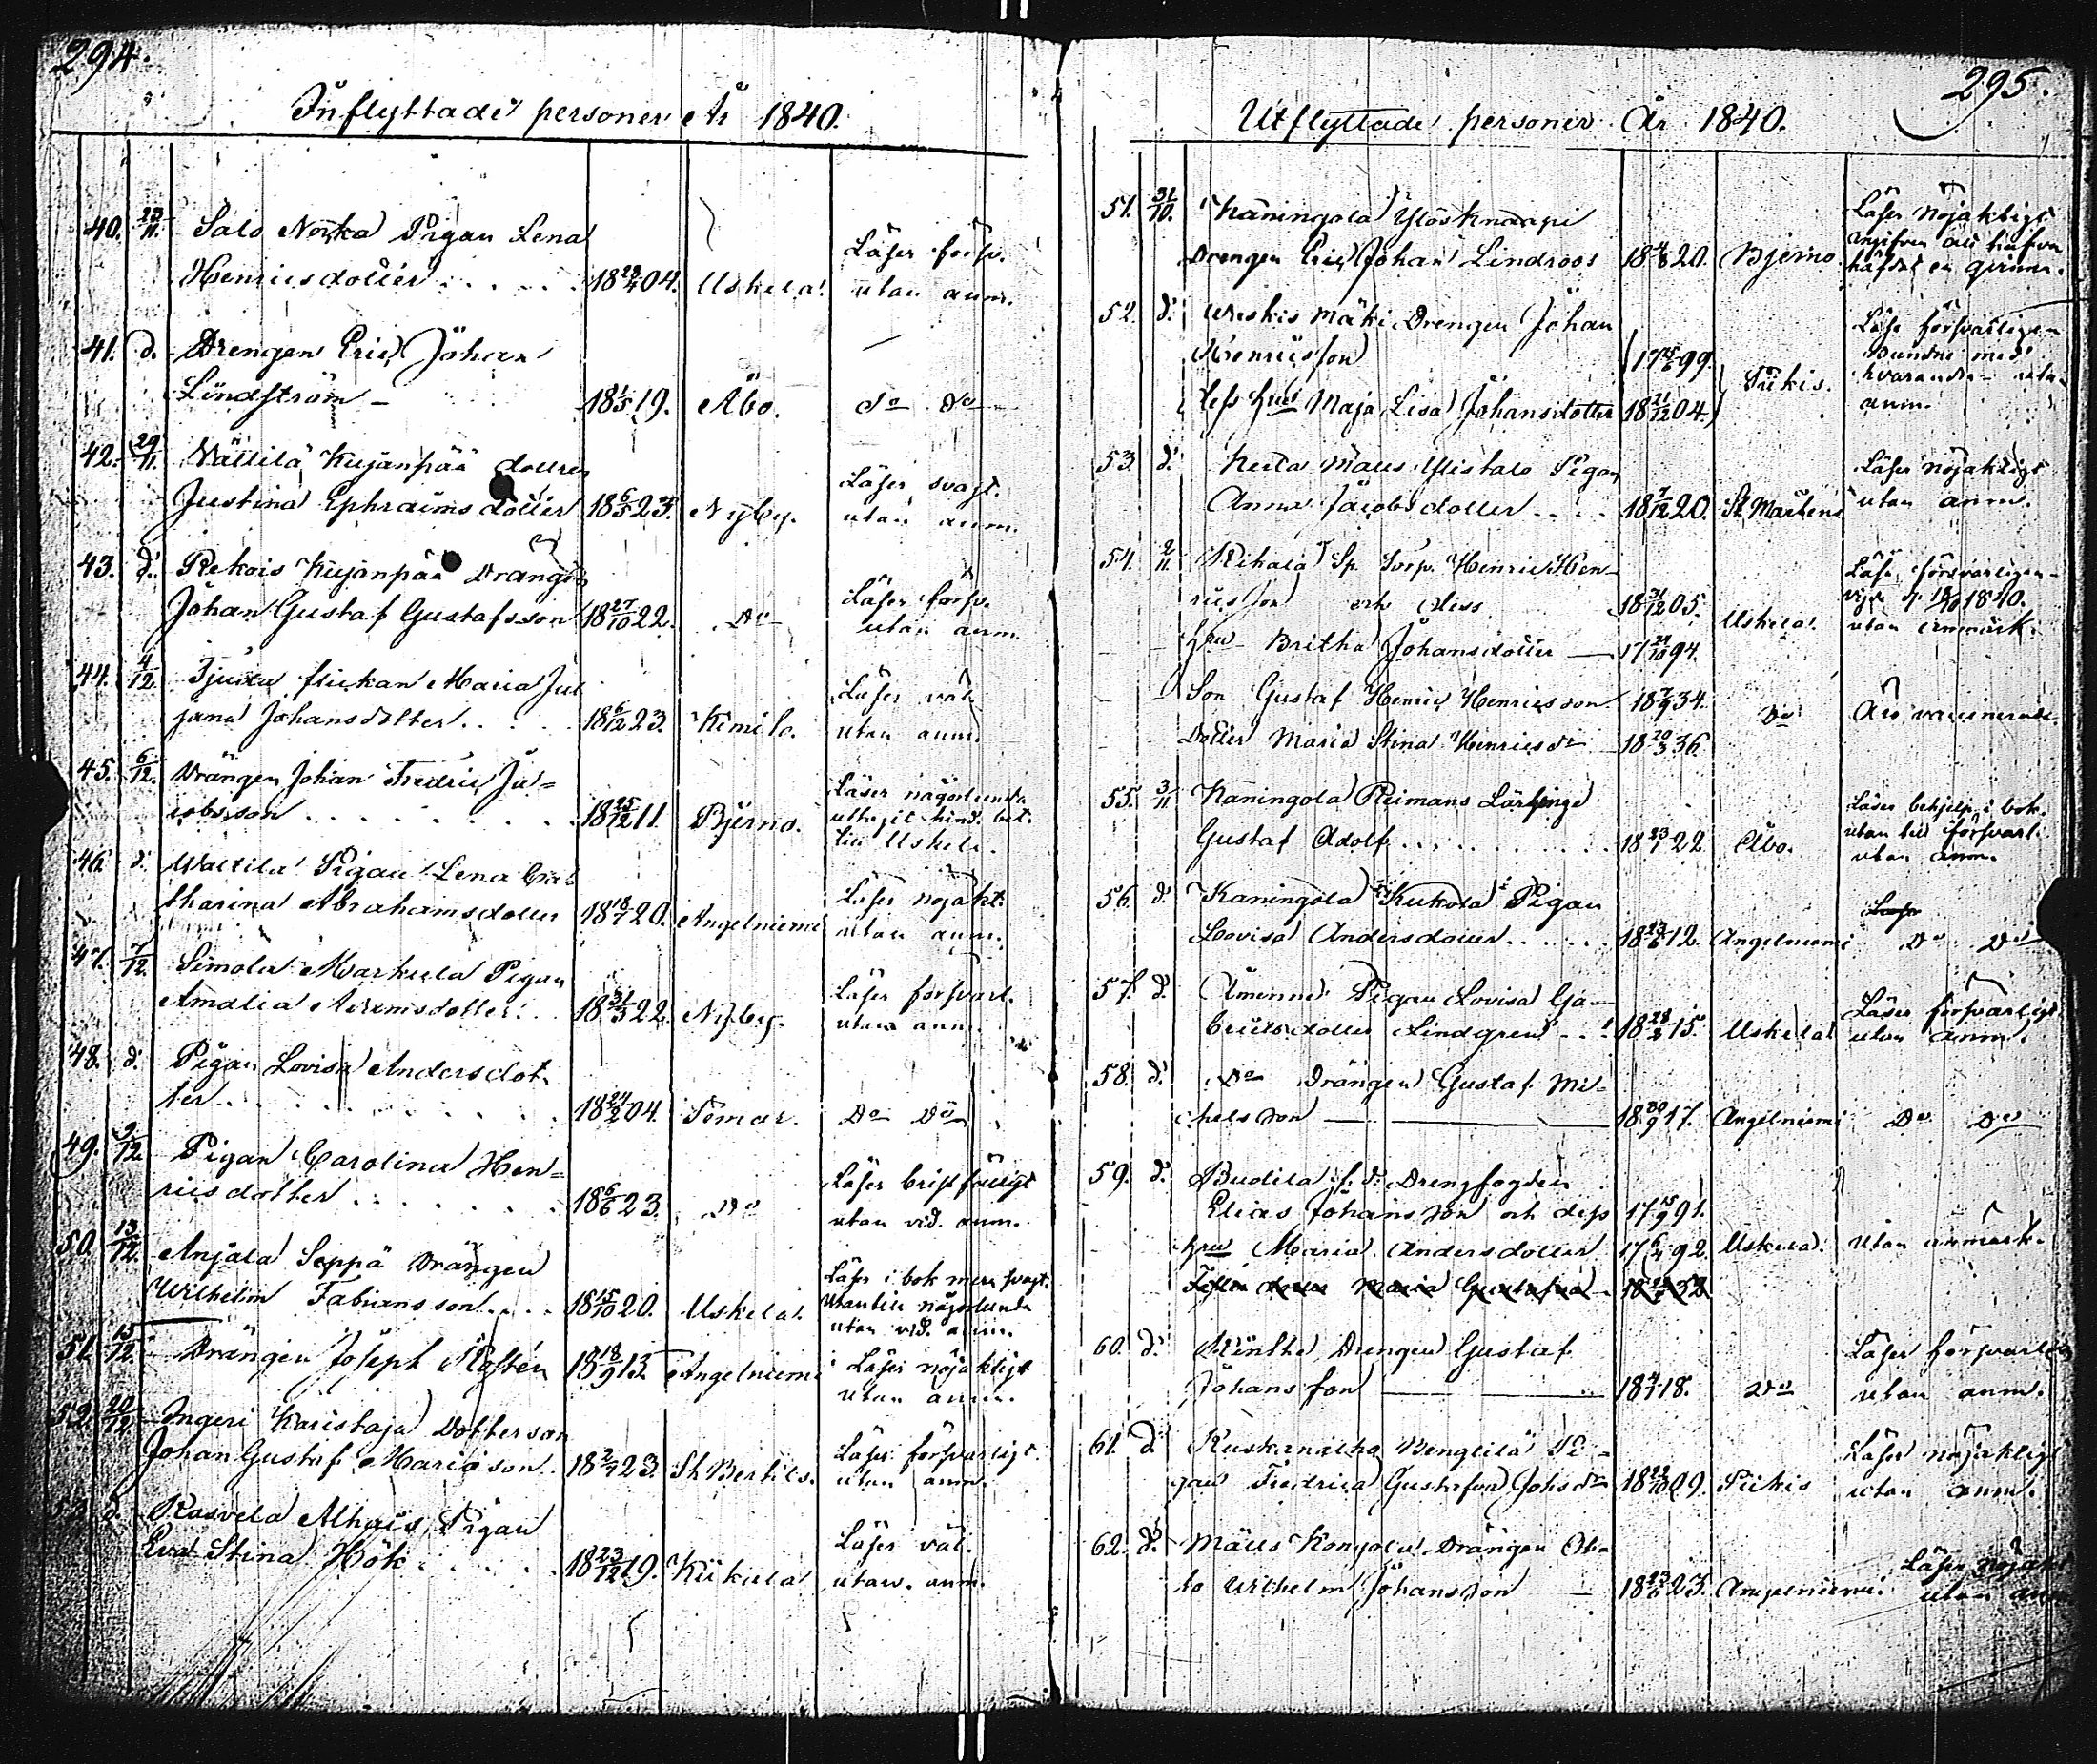 294.
Inflyttade personer År 1840.
40. 23/11. Salo Norka Pigan Lena
Henricsdotter 18 28/4 04. Uskela. Läser försv. utan anm.
41. d. Drengen Eric Johan
Lindström 18 1/5 19. Åbo. do do
42. 29/11. Vättilä Kujanpää dottren
Justina Ephraimsdotter 18 6/5 23. Nyby. Läser svagt. utan anm.
43. d. Rekois Kujanpää Drängen
Johan Gustaf Gustafsson 18 27/10 22. Do Läser försv. utan anm.
44. 4/12. Tjusta flickan Maria Jul
jana Johansdotter 18 6/12 23. Kimito. Läser väl utan anm.
45. 6/12. Drängen Johan Fredric Ja=
cobsson 18 25/12 11. Bjerno. Läser någorlunda
till Uskela.
46. d. Waltila Pigan Lena Ca
tharina Abrahamsdotter 18 18/7 20. Angelniemi Läser nöjakt. utan anm.
47. 7/12. Simola Markula Pigan
Amalia 18 31/3 22. Nyby. Läser försvarl. utan anm.
48. d. Pigan Lovisa Andersdot
ter 18 24/2 04. Semar. Do Do
49. 9/12 Pigan Carolina Hen=
ricsdotter 18 6/6 23. Do Läser
utan vid. anm.
50. 13/12. Anjala Seppä Drängen
Wilhelm Fabiansson 18 15/10 20. Uskela. Läser i bok mera svagt.
Utantill någorlunda
utan vid. anm.
51. 15/12. Drängen Joseph 18 18/9 13. Angelniemi Läser nöjaktigt
utan anm.
52. 20/12. Ingeri Karistaja Dotterson
Johan Gustaf Mariason 18 2/7 23. St Bertils. Läser försvarligt. utan anm.
53. d. Rasvela Alhais Pigan
Eva Stina Hök 18 23/12 19. Kiikala Läser väl. utan anm.
295.
Utflyttade personer År 1840.
51. 31/10. Kaningola Ylösknaapi
Drengen Eric Johan Lindroos 18 4/8 20. Bjerno. Läser nöjaktigt
52. d. Weskis mäki Drengen Johan
Henricsson 17 99. Läsa försvarligen
dess hru Maja Lisa Johansdotter 18 21/12 04. Piikis. hvarandra utan anm.
53. d. Pigan
Anna Jacobsdotter 18 7/12 20. St Mårtens Läser nöjaktigt utan anm.
54. 2/11 Rikala Sp. Torp. Henric Hen-
ricsson och dess 18 31/12 05. Uskela. Läsa försvarligen
1840. utan anmärk.
hru Britha Johansdotter 17 21/10 94.
Son Gustaf Henric Henricsson 18 7/9 34. Do Äro vaccinerade.
Dotter Maria Stina Henricsdr 18 20/3 36.
55. 3/11 Kaningola Reimans Lärlinge
Gustaf Adolf 18 23/1 22. Åbo. Läser behjelp. i bok.
utan till försvarl. utan anm.
56. d. Kaningola Kukola Pigan
Lovisa Andersdotter 18 23/6 12. Angelniemi Do Do
57. d. Åminne Pigan Lovisa Ga-
brielsdotter Lindgren 18 28/2 15. Uskela Läser försvarligt utan anm.
58. d. Do Drängen Gustaf Mi=
chelsson 18 30/9 17. Angelniemi Do Do
59. d. Budila f.d. Drengfogden
Elias Johansson och dess 17 15/9 91.
hru Maria Andersdotter 17 6/4 92 Uskela. Utan anmärk.
Maria Gustafva
60. d. Drengen Gustaf
Johansson 18 4/1 18. Do Läser försvarlig utan anm.
61. d. Ruskanalha Bengtilä Pi-
gan Fredrica Gustafva Johsdr 18 23/10 09. Piikis Läser nöjaktigt utan anm.
62. d. Kongola Drängen Ot-
to Wilhelm Johansson 18 23/6 23. Angelniemi. Läser nöjakt utan anm